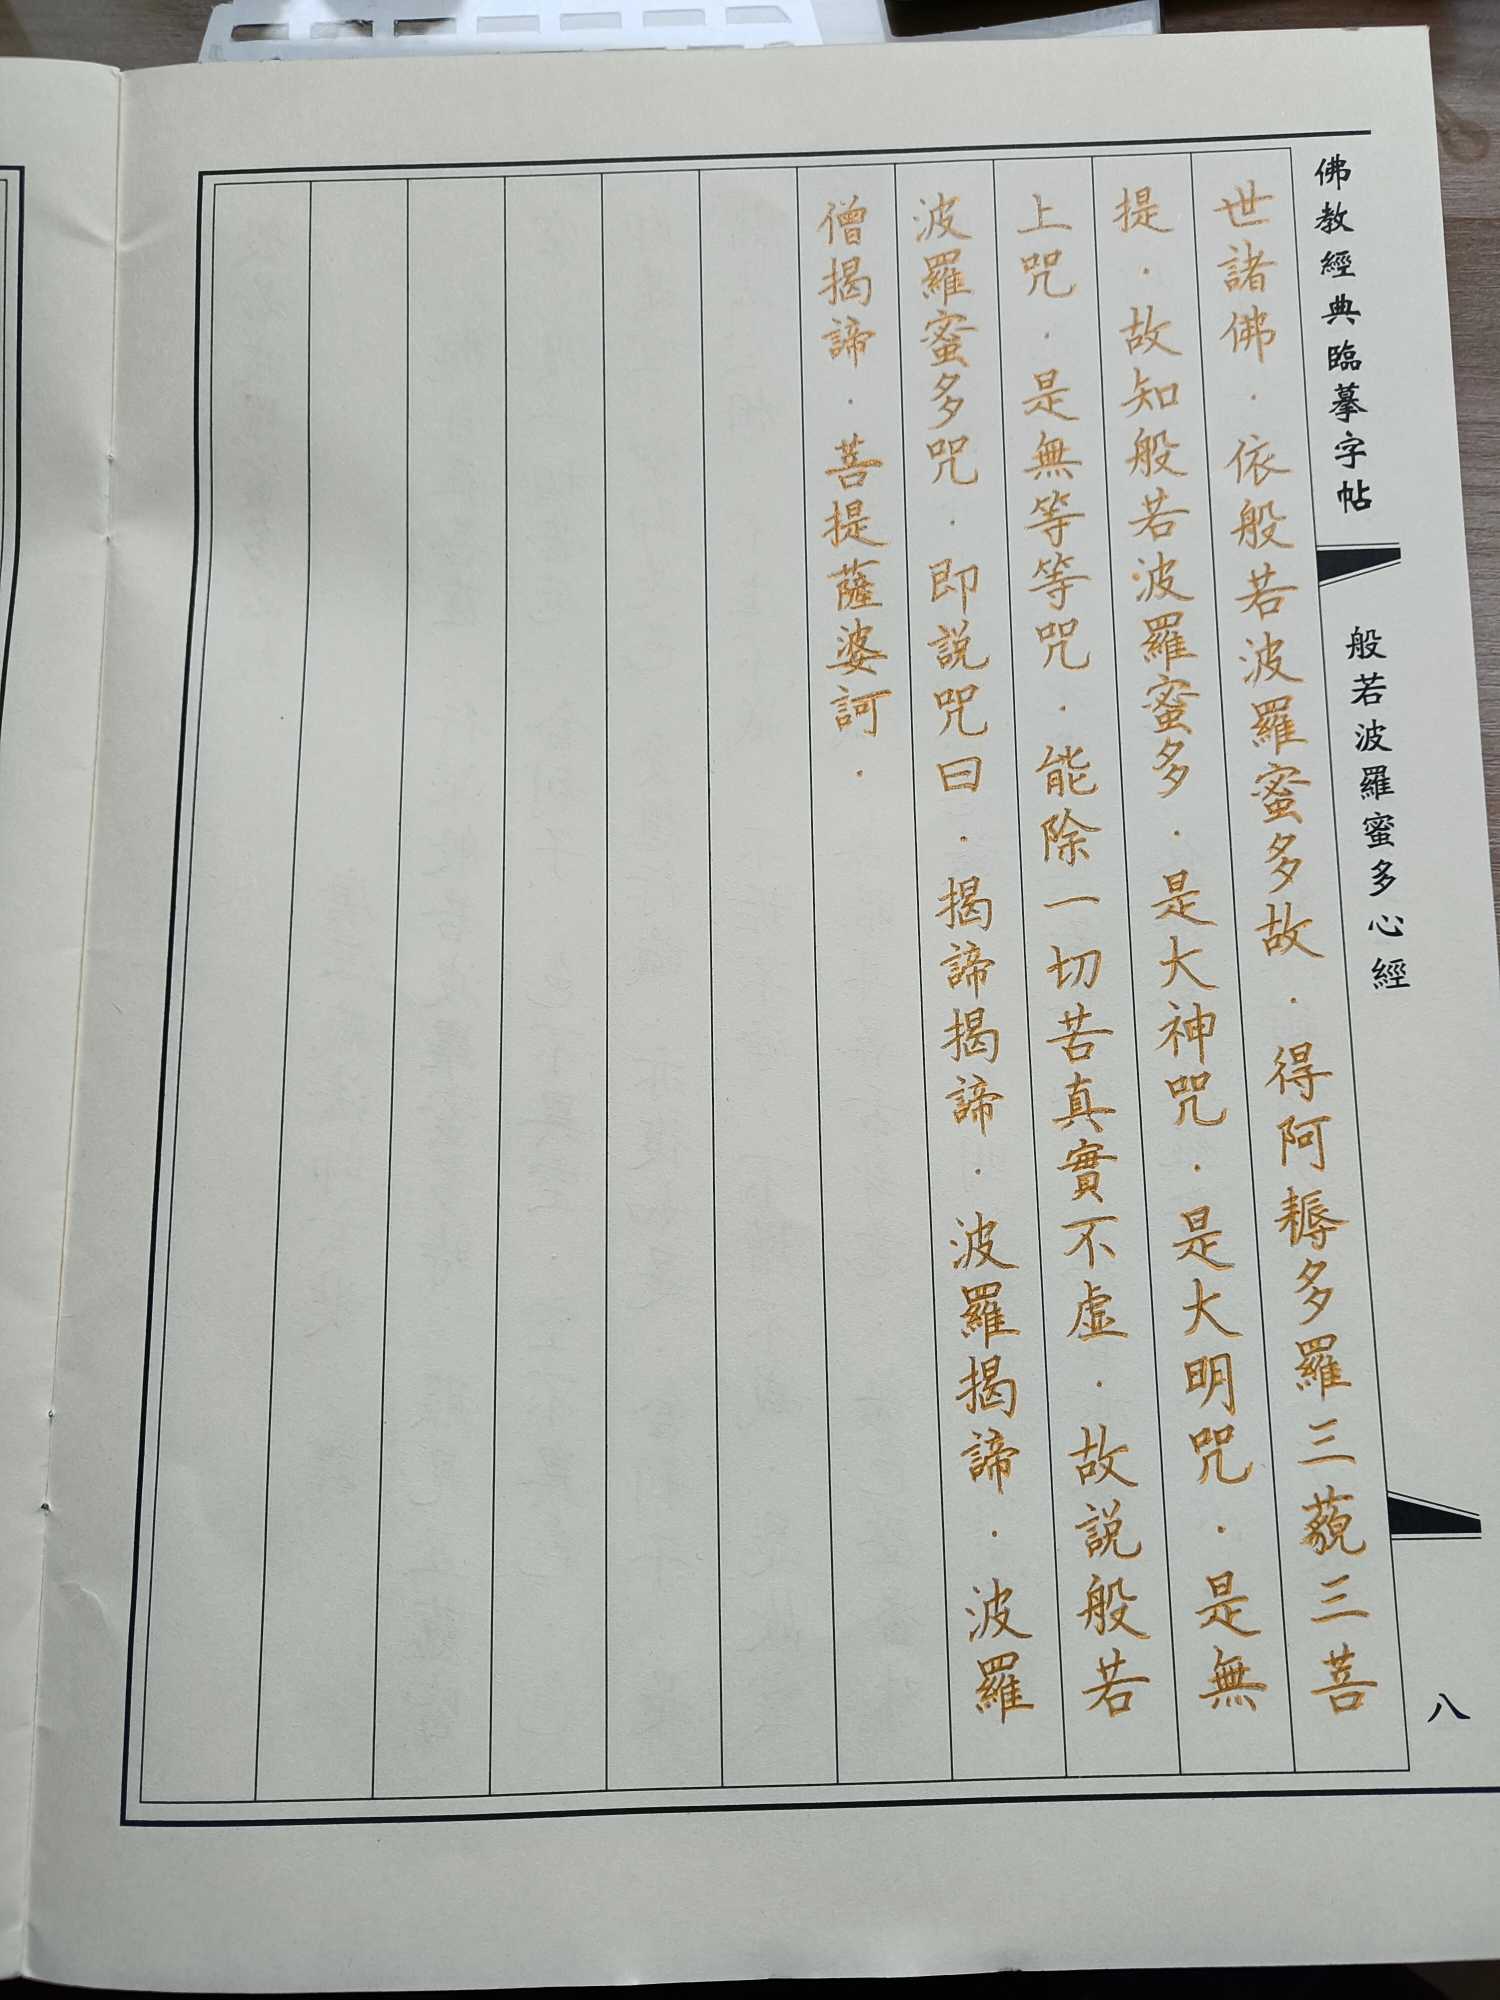 佛教經典臨摹字帖
般若波羅蜜多心經
八
世諸佛．依般若波羅蜜多故．得阿耨多羅三藐三菩
提．故知般若波羅蜜多．是大神咒．是大明咒．是無
上咒．是無等等咒．能除一切苦真實不虛．故説般若
波羅蜜多咒．即説咒曰．揭諦揭諦．波羅揭諦．波羅
僧揭諦．菩提薩婆訶．